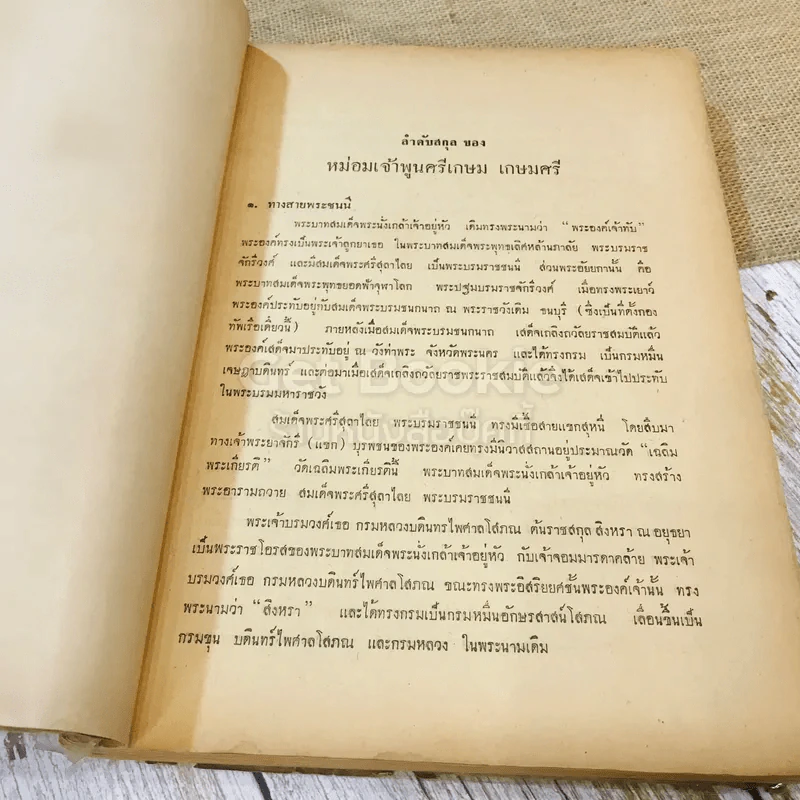 ลำดับสกุล ของ
หม่อมเจ้าพูนศรีเกษม เกษมศรี
๑. ทางสายพระชนนี
พระบาทสมเด็จพระนั่งเกล้าเจ้าอยู่หัว เดิมทรงพระนามว่า “พระองค์เจ้าทับ”
พระองค์ทรงเป็นพระเจ้าลูกยาเธอ ในพระบาทสมเด็จพระพุทธเลิศหล้านภาลัย พระบรมราช
จักรีวงศ์ และมีสมเด็จพระศรีสุลาไลย เป็นพระบรมราชชนนี ส่วนพระอัยยกานั้น คือ
พระบาทสมเด็จพระพุทธยอดฟ้าจุฬาโลก พระปฐมบรมราชจักรีวงศ์ เมื่อทรงพระเยาว์
พระองค์ประทับอยู่กับสมเด็จพระบรมชนกนาถ ณ พระราชวังเดิม ธนบุรี (ซึ่งเป็นที่ตั้งกอง
ทัพเรือเดี๋ยวนี้) ภายหลังเมื่อสมเด็จพระบรมชนกนาถ เสด็จเถลิงถวัลยราชสมบัติแล้ว
พระองค์เสด็จมาประทับอยู่ ณ วังท่าพระ จังหวัดพระนคร และได้ทรงกรม เป็นกรมหมื่น
เจษฎาบดินทร์ และต่อมาเมื่อเสด็จเถลิงถวัลยราชพระราชสมบัติแล้วจึงได้เสด็จเข้าไปประทับ
ในพระบรมมหาราชวัง
สมเด็จพระศรีสุลาไลย พระบรมราชชนนี ทรงมีเชื้อสายแขกสุหนี่ โดยสืบมา
ทางเจ้าพระยาจักรี (แขก) บุรพชนของพระองค์เคยทรงมีนิวาสสถานอยู่ประมาณวัด “เฉลิม
พระเกียรติ” วัดเฉลิมพระเกียรตินี้ พระบาทสมเด็จพระนั่งเกล้าเจ้าอยู่หัว ทรงสร้าง
พระอารามถวาย สมเด็จพระศรีสุลาไลย พระบรมราชชนนี
พระเจ้าบรมวงศ์เธอ กรมหลวงบดินทรไพศาลโสภณ ต้นราชสกุล สิงหรา ณ อยุธยา
เป็นพระราชโอรสของพระบาทสมเด็จพระนั่งเกล้าเจ้าอยู่หัว กับเจ้าจอมมารดาคล้าย พระเจ้า
บรมวงศ์เธอ กรมหลวงบดินทร์ไพศาลโสภณ ขณะทรงพระอิสริยยศชั้นพระองค์เจ้านั้น ทรง
พระนามว่า “สิงหรา” และได้ทรงกรมเป็นกรมหมื่นอักษรสาสน์โสภณ เลื่อนขึ้นเป็น
กรมขุน บดินทร์ไพศาลโสภณ และกรมหลวง ในพระนามเดิม
Get Bookie
รับซื้อหนังสือ